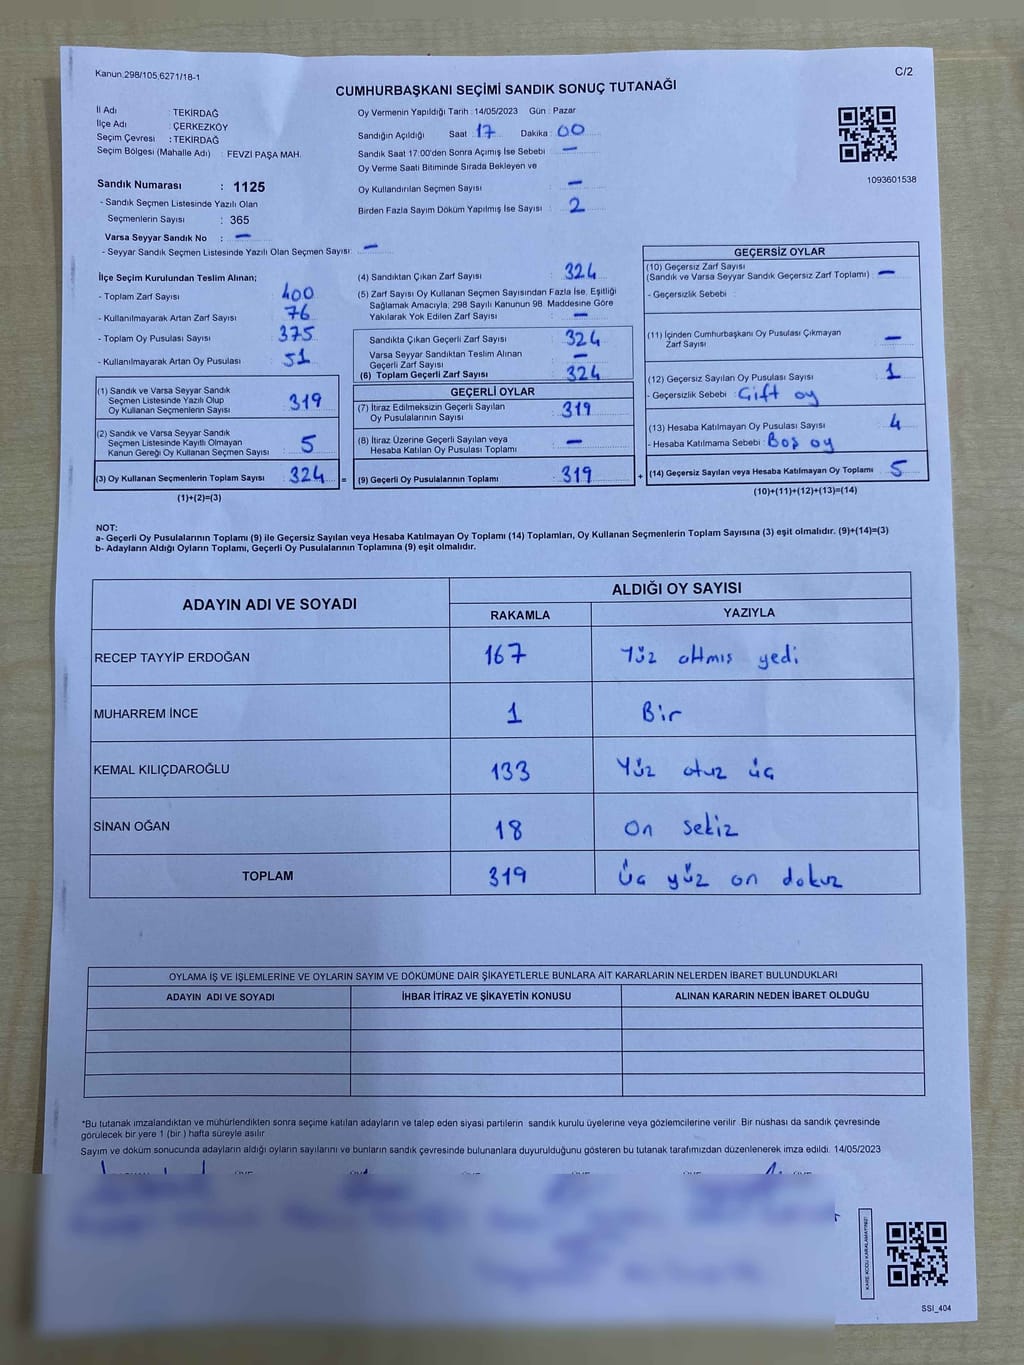 Kanun.298/105,6271/18-1
C/2
CUMHURBAŞKANI SEÇİMİ SANDIK SONUÇ TUTANAĞI
İl Adı : TEKİRDAĞ
İlçe Adı : ÇERKEZKÖY
Seçim Çevresi : TEKİRDAĞ
Seçim Bölgesi (Mahalle Adı) : FEVZİ PAŞA MAH.
Sandık Numarası : 1125
- Sandık Seçmen Listesinde Yazılı Olan
Seçmenlerin Sayısı : 365
Varsa Seyyar Sandık No : —
- Seyyar Sandık Seçmen Listesinde Yazılı Olan Seçmen Sayısı : —
Oy Vermenin Yapıldığı Tarih : 14/05/2023 Gün : Pazar
Sandığın Açıldığı Saat : 17 Dakika : 00
Sandık Saat 17:00'den Sonra Açımış İse Sebebi : —
Oy Verme Saati Bitiminde Sırada Bekleyen ve
Oy Kullandırılan Seçmen Sayısı : —
Birden Fazla Sayım Döküm Yapılmış İse Sayısı : 2
1093601538
İlçe Seçim Kurulundan Teslim Alınan;
- Toplam Zarf Sayısı : 400
- Kullanılmayarak Artan Zarf Sayısı : 76
- Toplam Oy Pusulası Sayısı : 375
- Kullanılmayarak Artan Oy Pusulası : 51
(1) Sandık ve Varsa Seyyar Sandık
Seçmen Listesinde Yazılı Olup
Oy Kullanan Seçmenlerin Sayısı : 319
(2) Sandık ve Varsa Seyyar Sandık
Seçmen Listesinde Kayıtlı Olmayan
Kanun Gereği Oy Kullanan Seçmen Sayısı : 5
(3) Oy Kullanan Seçmenlerin Toplam Sayısı : 324 =
(1)+(2)=(3)
(4) Sandıktan Çıkan Zarf Sayısı : 324
(5) Zarf Sayısı Oy Kullanan Seçmen Sayısından Fazla İse, Eşitliği
Sağlamak Amacıyla, 298 Sayılı Kanunun 98. Maddesine Göre
Yakılarak Yok Edilen Zarf Sayısı : —
Sandıkta Çıkan Geçerli Zarf Sayısı : 324
Varsa Seyyar Sandıktan Teslim Alınan
Geçerli Zarf Sayısı : —
(6) Toplam Geçerli Zarf Sayısı : 324
GEÇERLİ OYLAR
(7) İtiraz Edilmeksizin Geçerli Sayılan
Oy Pusulalarının Sayısı : 319
(8) İtiraz Üzerine Geçerli Sayılan veya
Hesaba Katılan Oy Pusulası Toplamı : —
(9) Geçerli Oy Pusulalarının Toplamı : 319 +
GEÇERSİZ OYLAR
(10) Geçersiz Zarf Sayısı
(Sandık ve Varsa Seyyar Sandık Geçersiz Zarf Toplamı) : —
- Geçersizlik Sebebi :
(11) İçinden Cumhurbaşkanı Oy Pusulası Çıkmayan
Zarf Sayısı : —
(12) Geçersiz Sayılan Oy Pusulası Sayısı : 1
- Geçersizlik Sebebi : Çift oy
(13) Hesaba Katılmayan Oy Pusulası Sayısı : 4
- Hesaba Katılmama Sebebi : Boş oy
(14) Geçersiz Sayılan veya Hesaba Katılmayan Oy Toplamı : 5
(10)+(11)+(12)+(13)=(14)
NOT:
a- Geçerli Oy Pusulalarının Toplamı (9) ile Geçersiz Sayılan veya Hesaba Katılmayan Oy Toplamı (14) Toplamları, Oy Kullanan Seçmenlerin Toplam Sayısına (3) eşit olmalıdır. (9)+(14)=(3)
b- Adayların Aldığı Oyların Toplamı, Geçerli Oy Pusulalarının Toplamına (9) eşit olmalıdır.
ADAYIN ADI VE SOYADI ALDIĞI OY SAYISI
RAKAMLA YAZIYLA
RECEP TAYYİP ERDOĞAN 167 Yüz altmış yedi
MUHARREM İNCE 1 Bir
KEMAL KILIÇDAROĞLU 133 Yüz otuz üç
SİNAN OĞAN 18 On sekiz
TOPLAM 319 Üç yüz on dokuz
OYLAMA İŞ VE İŞLEMLERİNE VE OYLARIN SAYIM VE DÖKÜMÜNE DAİR ŞİKAYETLERLE BUNLARA AİT KARARLARIN NELERDEN İBARET BULUNDUKLARI
ADAYIN ADI VE SOYADI İHBAR İTİRAZ VE ŞİKAYETİN KONUSU ALINAN KARARIN NEDEN İBARET OLDUĞU
*Bu tutanak imzalandıktan ve mühürlendikten sonra seçime katılan adayların ve talep eden siyasi partilerin sandık kurulu üyelerine veya gözlemcilerine verilir. Bir nüshası da sandık çevresinde
görülecek bir yere 1 (bir ) hafta süreyle asılır.
Sayım ve döküm sonucunda adayların aldığı oyların sayılarını ve bunların sandık çevresinde bulunanlara duyurulduğunu gösteren bu tutanak tarafımızdan düzenlenerek imza edildi. 14/05/2023
KARE KODU KARALAMAYINIZ!
SSI_404